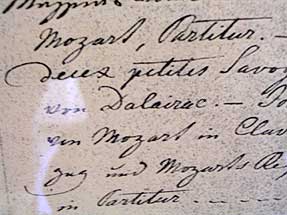 Mozart, Partitur. –
deux petites Savoy
von Dalairac. –
von Mozart in Clav
zug und Mozarts Re
in Partitur - - - -